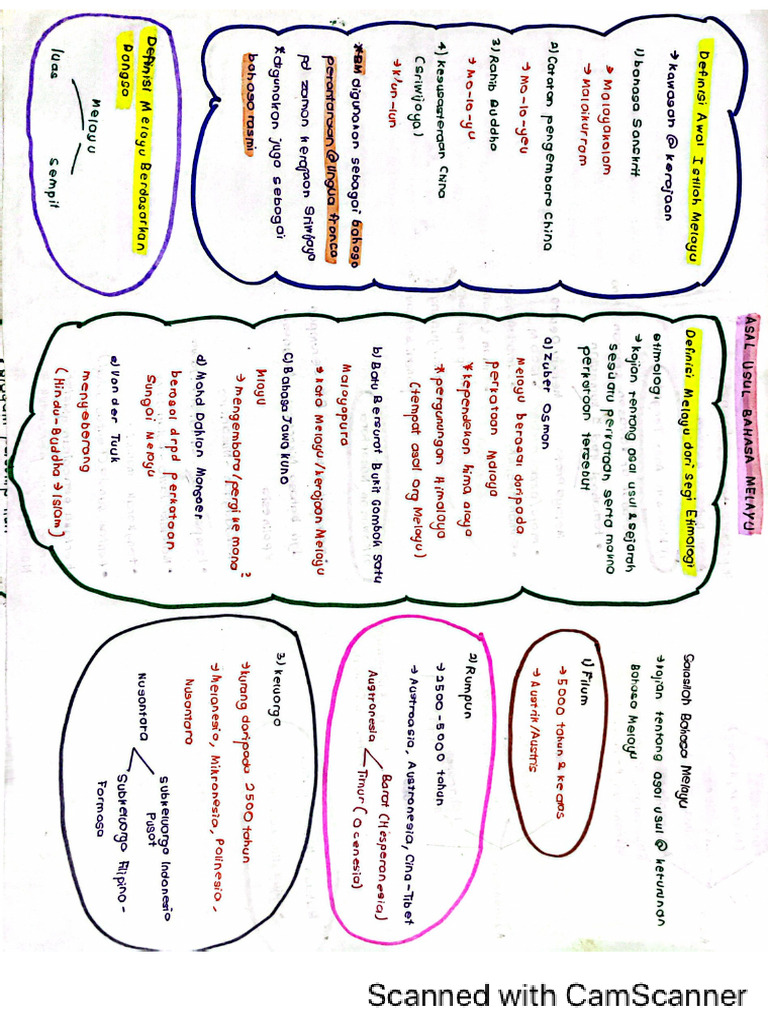 ASAL USUL BAHASA MELAYU
Definisi Awal Istilah Melayu
→ Kawasan @ kerajaan
1) Bahasa Sanskrit
→ Malayakolam
→ Malaikurram
2) Catatan pengembara China
→ Ma-lo-yeu
3) Rahib Buddha
→ Ma-lo-yu
4) Kesusasteraan China
(Sriwijaya)
→ K'un-lun
*BM digunakan sebagai bahasa
perantaraan @ lingua franca
pd zaman kerajaan Sriwijaya
*digunakan juga sebagai
bahasa rasmi
Definisi Melayu Berdasarkan
Bangsa
Melayu
luas
sempit
Definisi Melayu dari segi Etimologi
etimologi
→ kajian tentang asal usul & sejarah
sesuatu perkataan serta makna
perkataan tersebut
a) Zuber Osman
Melayu berasal daripada
perkataan Malaya
*kependekan hima alaya
*pergunungan Himalaya
(tempat asal org Melayu)
b) Batu Bersurat Bukit Gombak Satu
Malayapura
→ kota Melayu/kerajaan Melayu
c) Bahasa Jawa Kuno
Mlayu
→ mengembara/pergi ke mana?
d) Mohd Dahlan Mansoer
berasal drpd perkataan
Sungai Melayu
e) Van der Tuuk
menyeberang
(Hindu-Buddha → Islam)
Salasilah Bahasa Melayu
→ kajian tentang asal usul @ keturunan
Bahasa Melayu
1) Filum
→ 5000 tahun & ke atas
→ Austrik/Austris
2) Rumpun
→ 2500-5000 tahun
→ Austroasia, Austronesia, Cina-Tibet
Austronesia
Barat (Hesperonesia)
Timur (Ocenesia)
3) Keluarga
→ kurang daripada 2500 tahun
→ Melanesia, Mikronesia, Polinesia,
Nusantara
Nusantara
Subkeluarga Indonesia
Pusat
Subkeluarga Filipino-
Formosa
Scanned with CamScanner